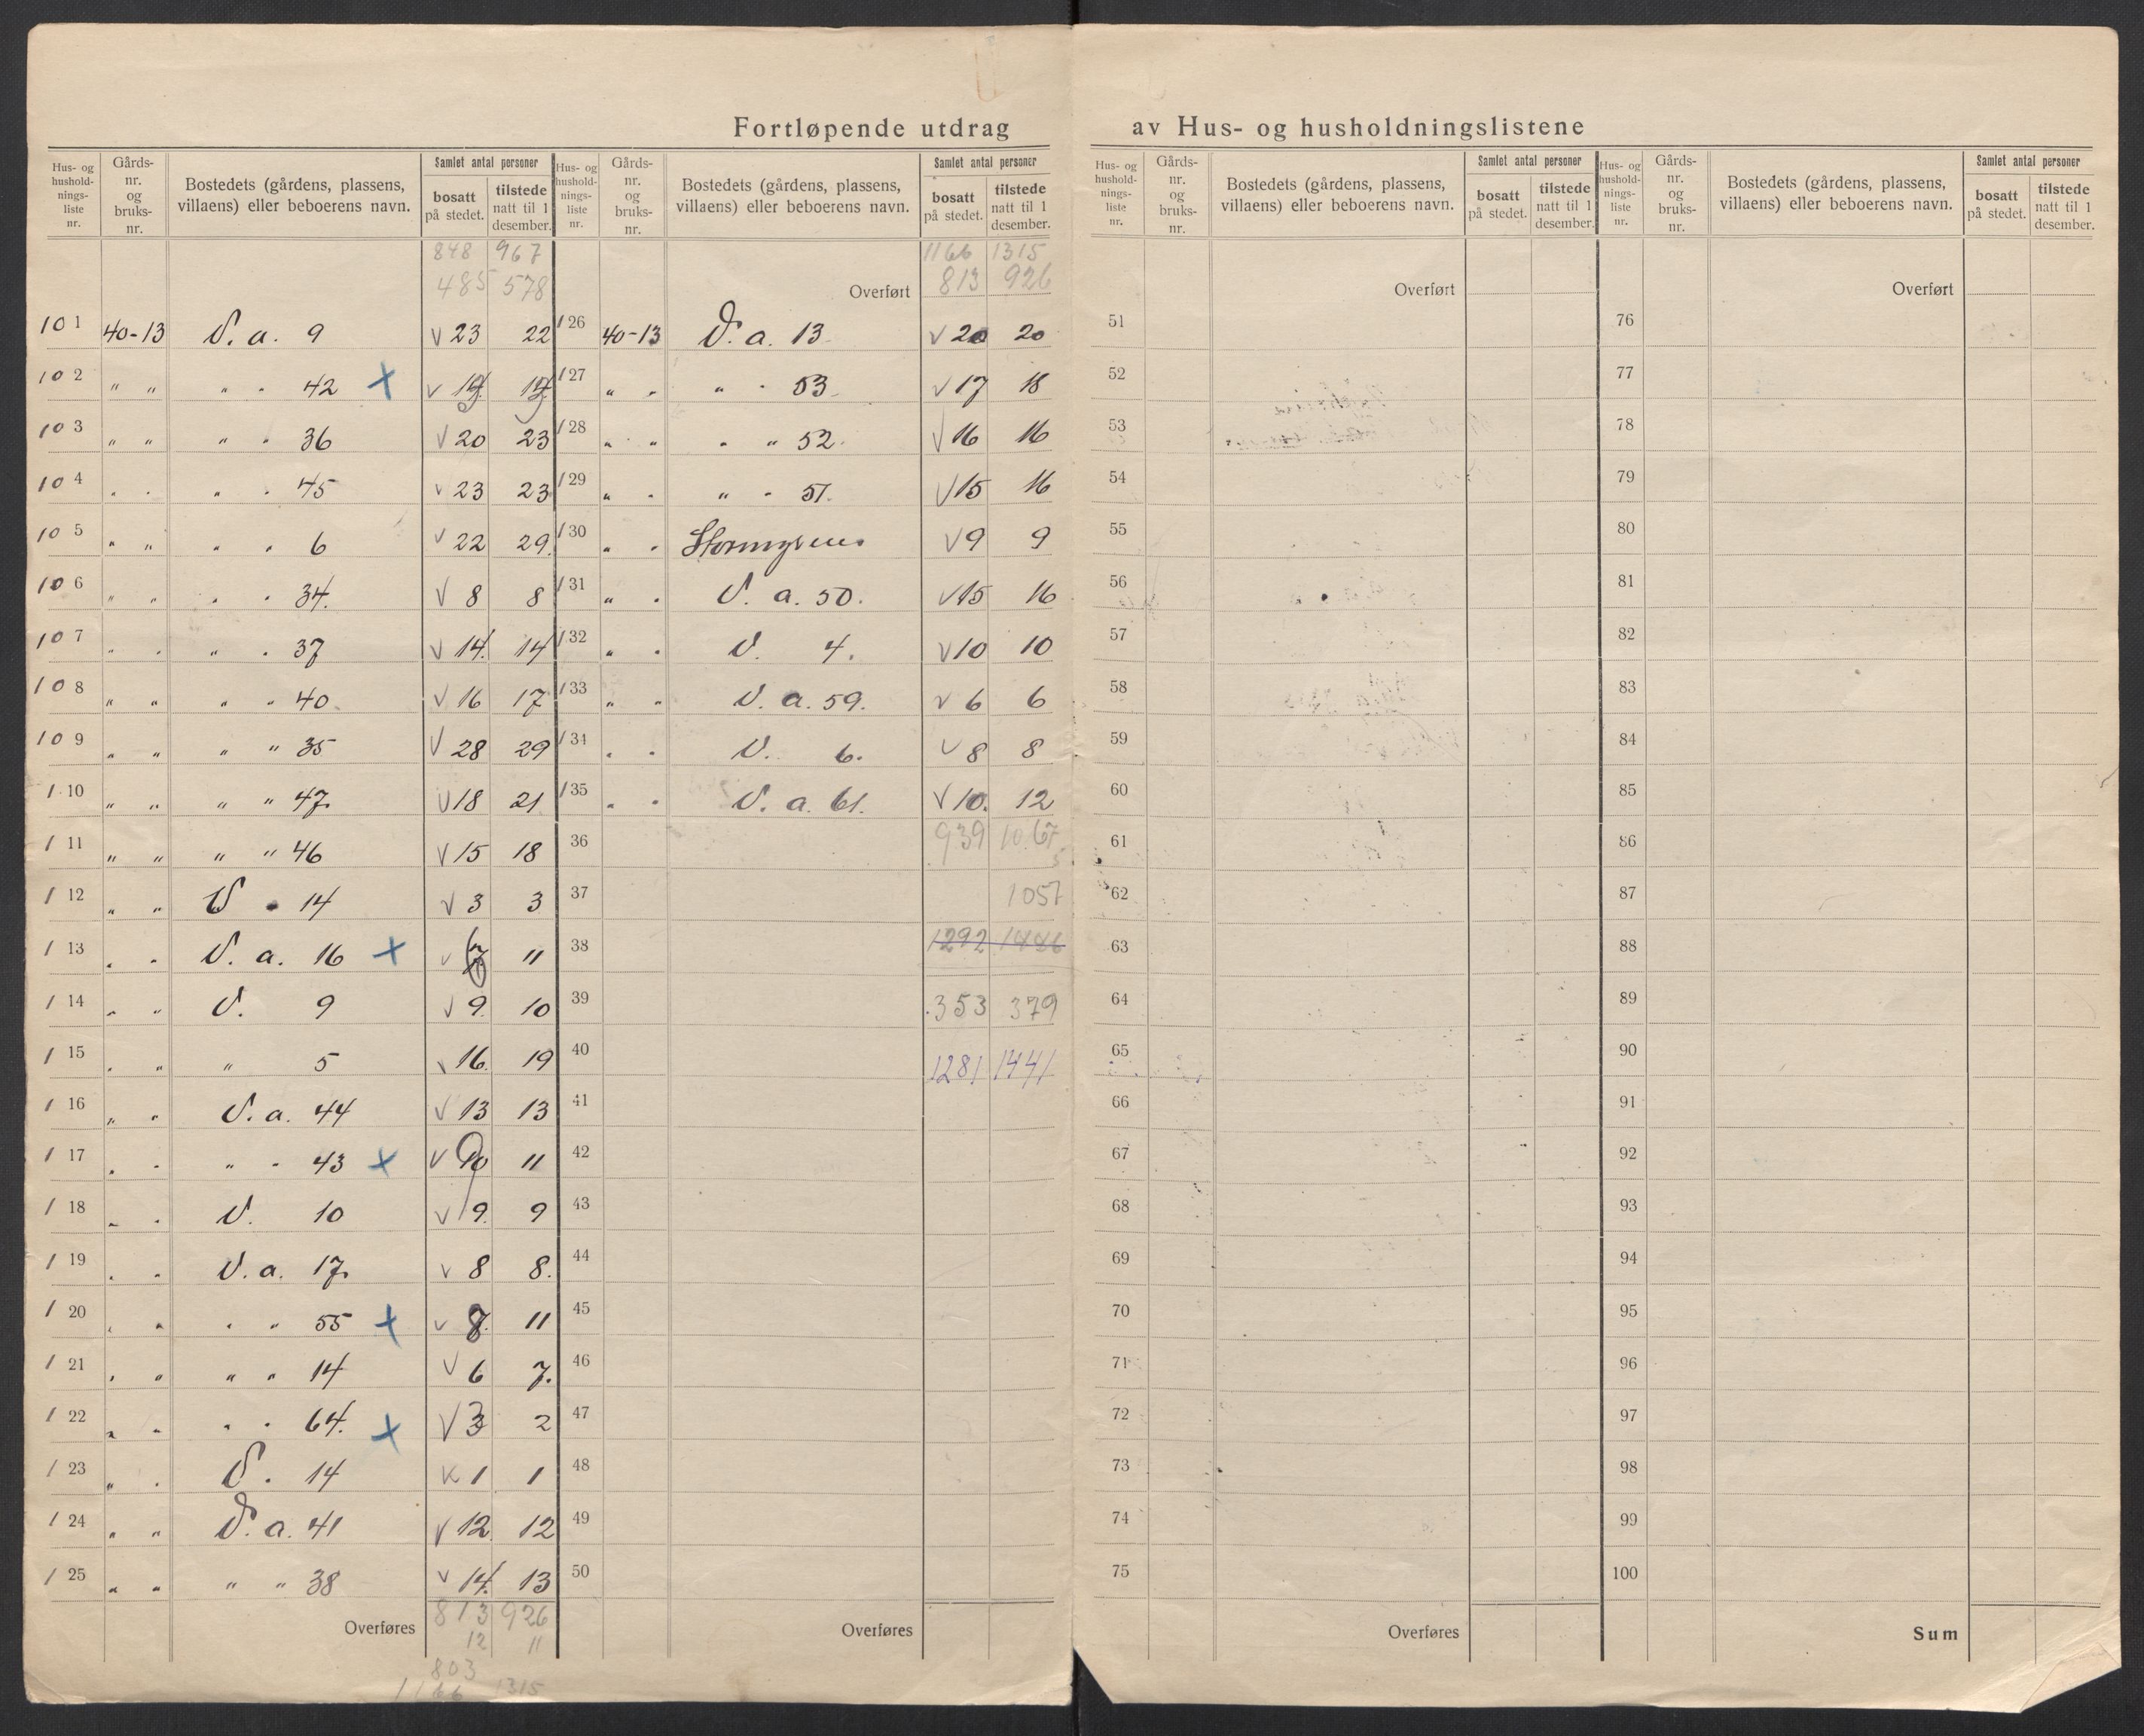 Fortløpende utdrag av Hus- og husholdningslistene
Hus- og hushold- nings- liste nr. Gårds- nr. og bruks- nr. Bostedets (gårdens, plassens, villaens) eller beboerens navn. Samlet antal personer bosatt på stedet. tilstede natt til 1 desember.
848 967
485 578
101 40-13 V. a. 9 V 23 22
102 " " " " 42 +
103 " " " " 36 V 20 23
104 " " " " 45 V 23 23
105 " " " " 6 V 22 29.
106 " " " " 34. V 8 8
107 " " " " 37 V 14. 14
108 " " " " 40 V 16 17
109 " " " " 35 V 28 29
110 " " " " 47. V 18 21
111 " " " " 46 V 15 18
112 " " V " 14 V 3 3
113 " " V. a. 16 + V 11
114 " " V. 9 V 9 10
115 " " " 5 V 16. 19
116 " " V. a. 44 V 13 13
117 " " " " 43 + V 11
118 " " V. 10 V 9. 9
119 " " V. a. 17. V 8 8.
120 " " " " 55 + V 11
121 " " " " 14 V 6 7.
122 " " " " 64. + V 3 2
123 " " V. 14 V 1 1
124 " " V. a. 41 V 12 12
125 " " " " 38 V 14. 13
Overføres 813 926
12 11
803
1166 1315
Hus- og hushold- nings- liste nr. Gårds- nr. og bruks- nr. Bostedets (gårdens, plassens, villaens) eller beboerens navn. Samlet antal personer bosatt på stedet. tilstede natt til 1 desember.
1166 1315
Overført 813 926
126 40-13 V. a. 13 V 20 20
127 " " " " 53 V 17 18
128 " " " " 52. V 16 16
129 " " " " 51. V 15 16
130 " " V 9 9
131 " " V. a. 50. V 15 16
132 " " V. 4. V 10 10
133 " " V. a. 59. V 6 6
134 " " V. 6. V 8 8
135 " " V. a. 61. V 10. 12
36 939 1067
37 1057
38 1292 1446
39 353 379
40 1281 1441
41
42
43
44
45
46
47
48
49
50
Overføres
Hus- og hushold- nings- liste nr. Gårds- nr. og bruks- nr. Bostedets (gårdens, plassens, villaens) eller beboerens navn. Samlet antal personer bosatt på stedet. tilstede natt til 1 desember.
Overført
51
52
53
54
55
56
57
58
59
60
61
62
63
64
65
66
67
68
69
70
71
72
73
74
75
Overføres
Hus- og hushold- nings- liste nr. Gårds- nr. og bruks- nr. Bostedets (gårdens, plassens, villaens) eller beboerens navn. Samlet antal personer bosatt på stedet. tilstede natt til 1 desember.
Overført
76
77
78
79
80
81
82
83
84
85
86
87
88
89
90
91
92
93
94
95
96
97
98
99
100
Sum